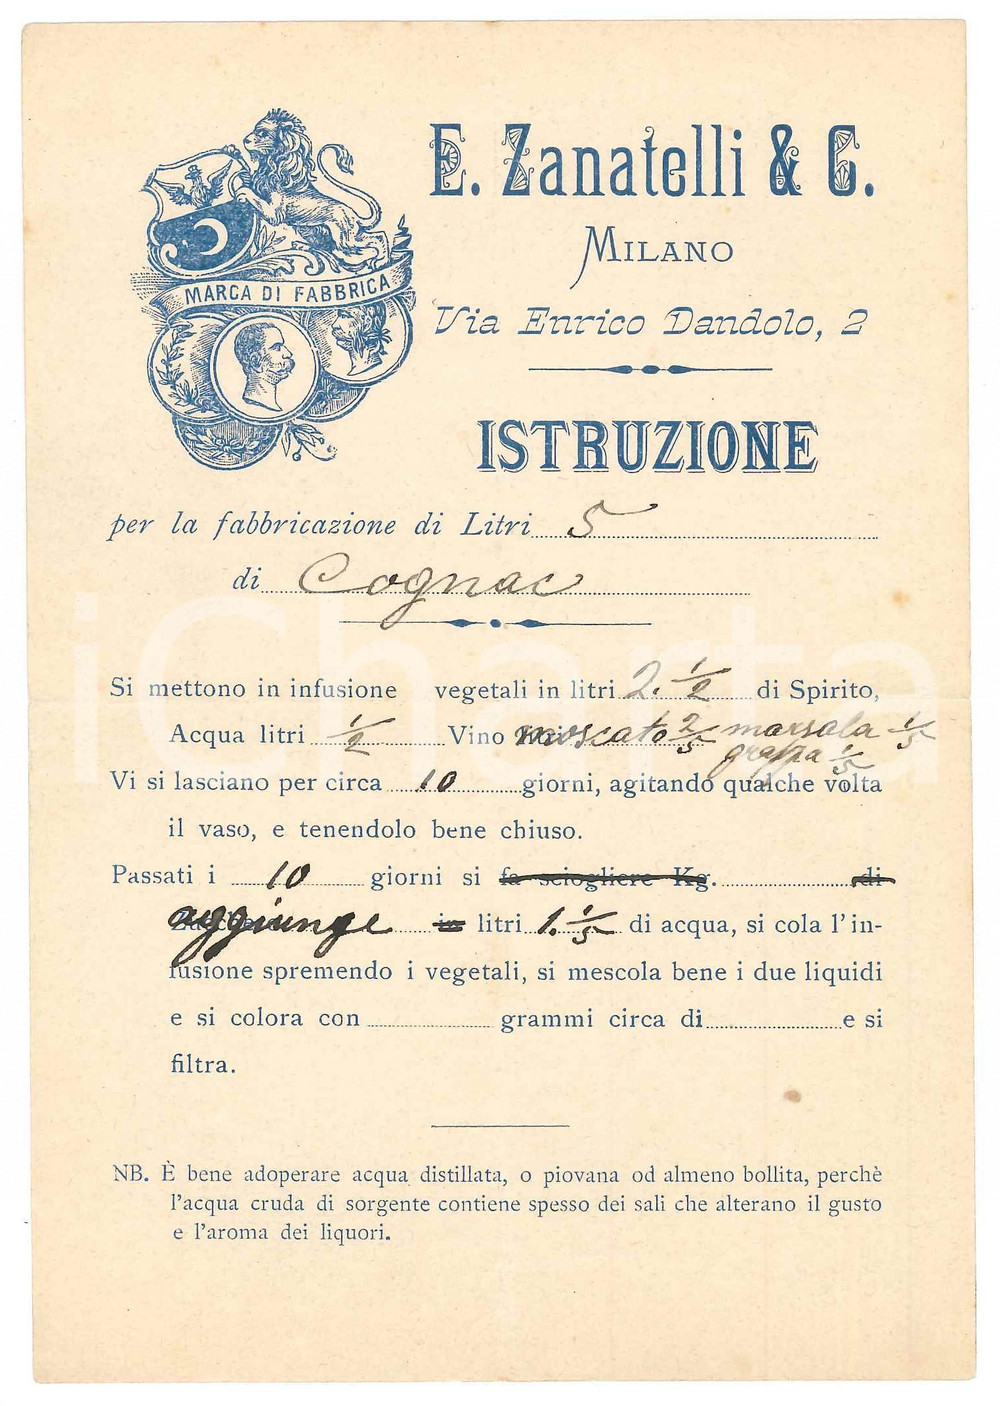 E. Zanatelli & C.
MILANO
Via Enrico Dandolo, 2
MARCA DI FABBRICA
ISTRUZIONE
per la fabbricazione di Litri 5
di Cognac
Si mettono in infusione vegetali in litri 2. 1/2 di Spirito,
Acqua litri 1/2 Vino moscato 2/5 marsala 1/5
grappa 1/5
Vi si lasciano per circa 10 giorni, agitando qualche volta
il vaso, e tenendolo bene chiuso.
Passati i 10 giorni si fa sciogliere Kg. di
aggiunge in litri 1. 1/5 di acqua, si cola l'in-
fusione spremendo i vegetali, si mescola bene i due liquidi
e si colora con grammi circa di e si
filtra.
NB. È bene adoperare acqua distillata, o piovana od almeno bollita, perchè
l'acqua cruda di sorgente contiene spesso dei sali che alterano il gusto
e l'aroma dei liquori.
iCharta